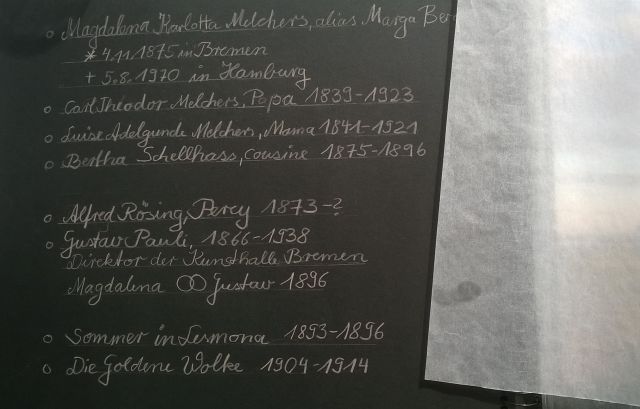 Magdalena Karlotta Melchers, alias Marga Ber
* 4.11.1875 in Bremen
+ 5.8.1970 in Hamburg
Carl Theodor Melchers, Papa 1839-1923
Luise Adelgunde Melchers, Mama 1841-1921
Bertha Schellhass, Cousine 1875-1896
Alfred Rösing, Percy 1873-?
Gustav Pauli, 1866-1938
Direktor der Kunsthalle Bremen
Magdalena ⚭ Gustav 1896
Sommer in Lesmona 1893-1896
Die Goldene Wolke 1904-1914